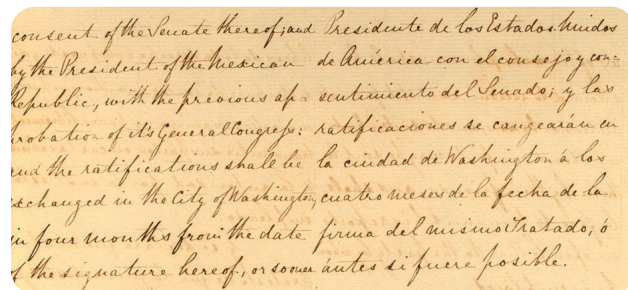 consent of the Senate thereof; and
by the President of the Mexican
Republic, with the previous ap=
probation of it's General Congress:
and the ratifications shall be
exchanged in the City of Washington,
in four months from the date
of the signature hereof, or sooner
Presidente de los Estados Unidos
de América con el consejo y con=
sentimiento del Senado; y las
ratificaciones se cangearán en
la ciudad de Washington á los
cuatro meses de la fecha de la
firma del mismo Tratado, ó
ántes si fuere posible.